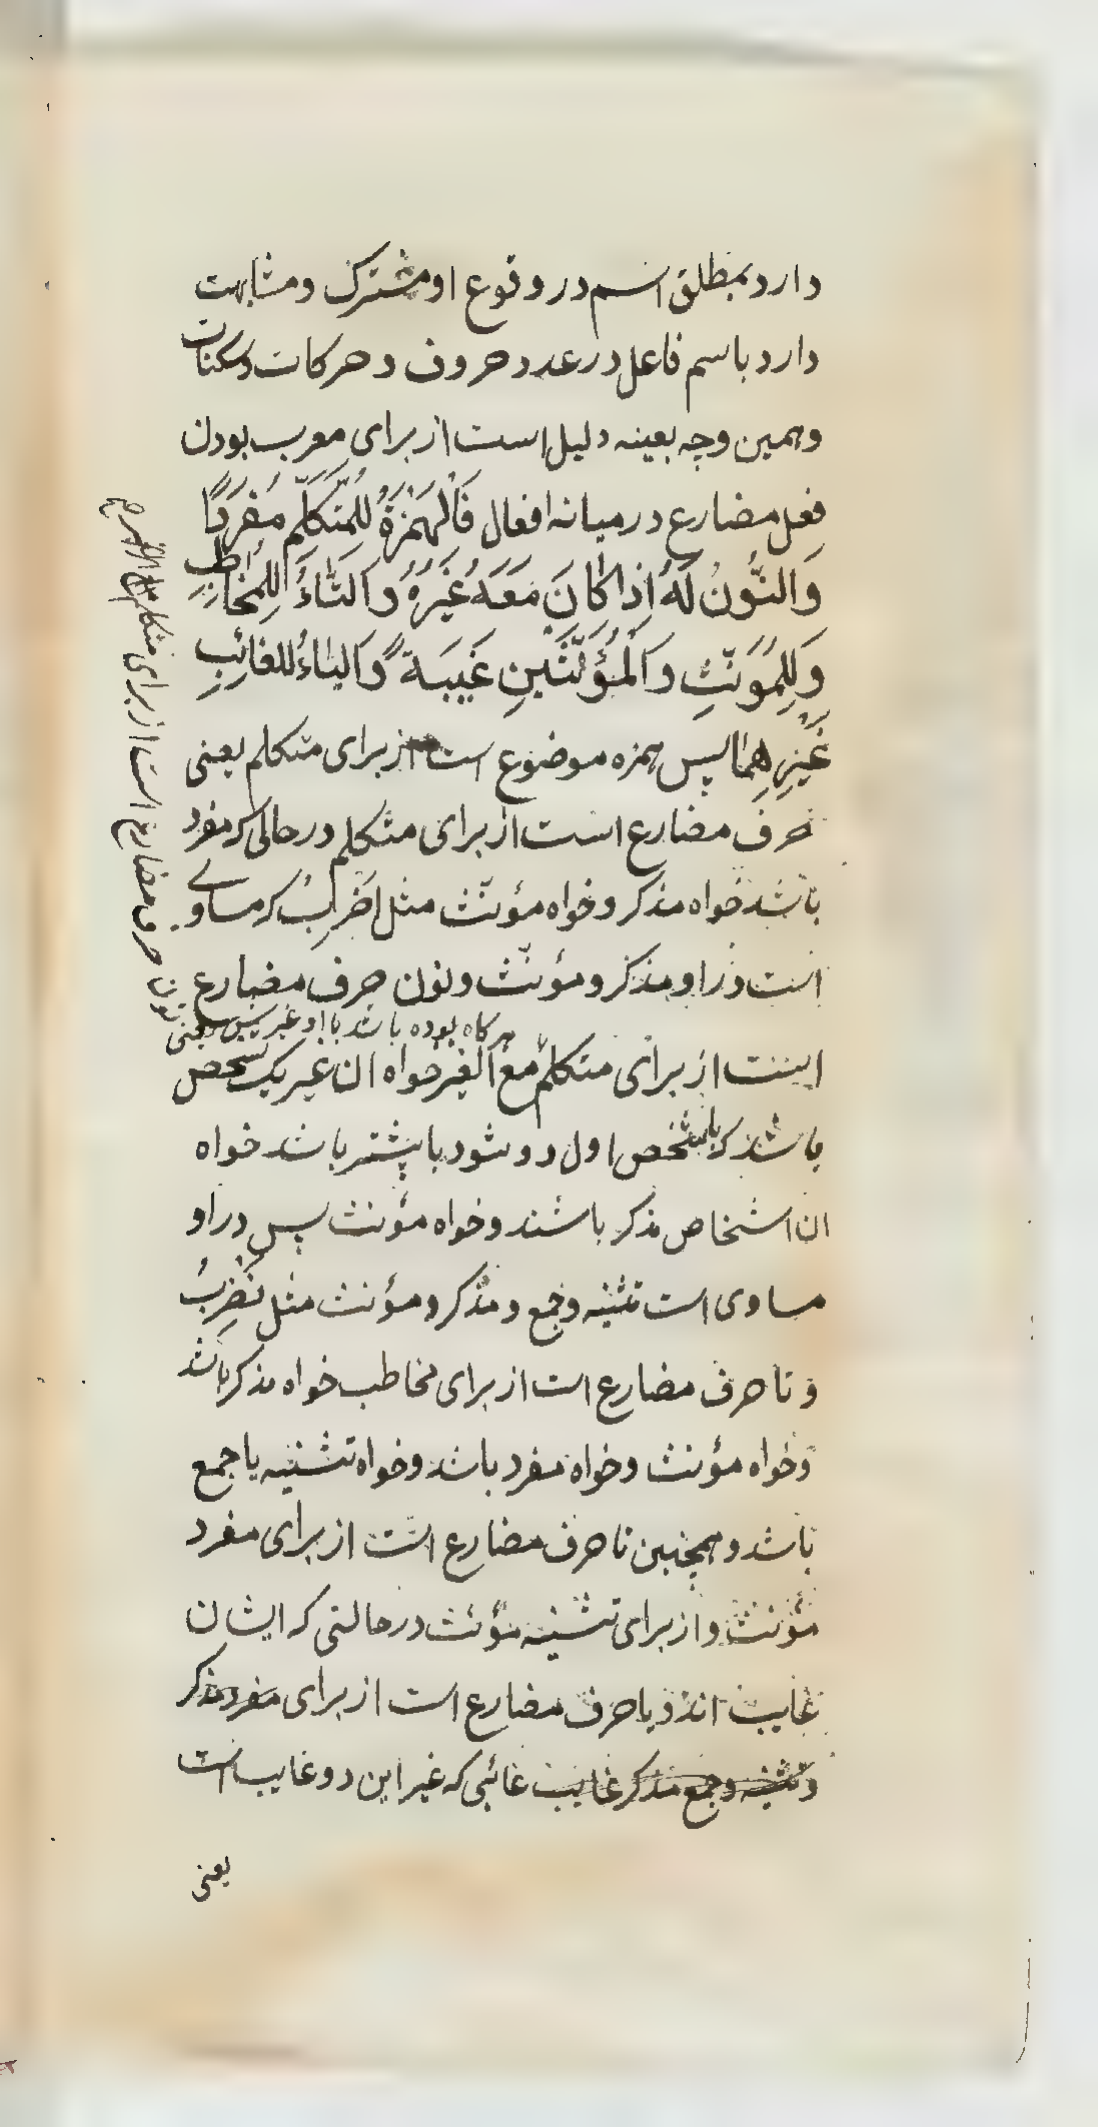 دارد بمطلق اسم در وقوع او مشترک و مشابهت
دارد باسم فاعل در عدد حروف و حرکات و سکنات
و همین وجه بعینه دلیل است از برای معرب بودن
فعل مضارع در میانه افعال فَالْهَمْزَةُ لِلْمُتَكَلِّمِ مُفْرَدًا
وَالنُّونُ لَهُ اِذَا كَانَ مَعَهُ غَيْرُهُ وَالتَّاءُ لِلْمُخَاطَبِ
وَلِلْمُوَنَّثِ وَالْمُؤَنَّثَيْنِ غَيْبَةً وَالْيَاءُ لِلْغَائِبِ
غَيْرِهِمَا پس همزه موضوع است از برای متکلم یعنی
حرف مضارع است از برای متکلم در حالی که مفرد
باشد خواه مذکر و خواه مؤنّث مثل اَضْرِبُ که مساوی
است در او مذکر و مؤنّث و نون حرف مضارع
هرگاه بوده باشد با او غیر پس یعنی
است از برای متکلم مع الغیر خواه ان غیر یک شخص
باشد که با شخص اول دو شود یا بیشتر باشد خواه
ان اشخاص مذکر باشند و خواه مؤنث پس در او
مساوی است تثنیه و جمع و مذکر و مؤنث مثل نَضْرِبُ
و تا حرف مضارع است از برای مخاطب خواه مذکر باشد
و خواه مؤنث و خواه مفرد باشد و خواه تثنیه یا جمع
باشد و همچنین تا حرف مضارع است از برای مفرد
مؤنث و از برای تثنیه مؤنث در حالتی که ایشان
غایب اند و یا حرف مضارع است از برای مفرد مذکر
و تثنیه و جمع مذکر غایب غائبی که غیر این دو غایب است
یعنی
نون حرف مضارع است از برای متکلم مع الغیر